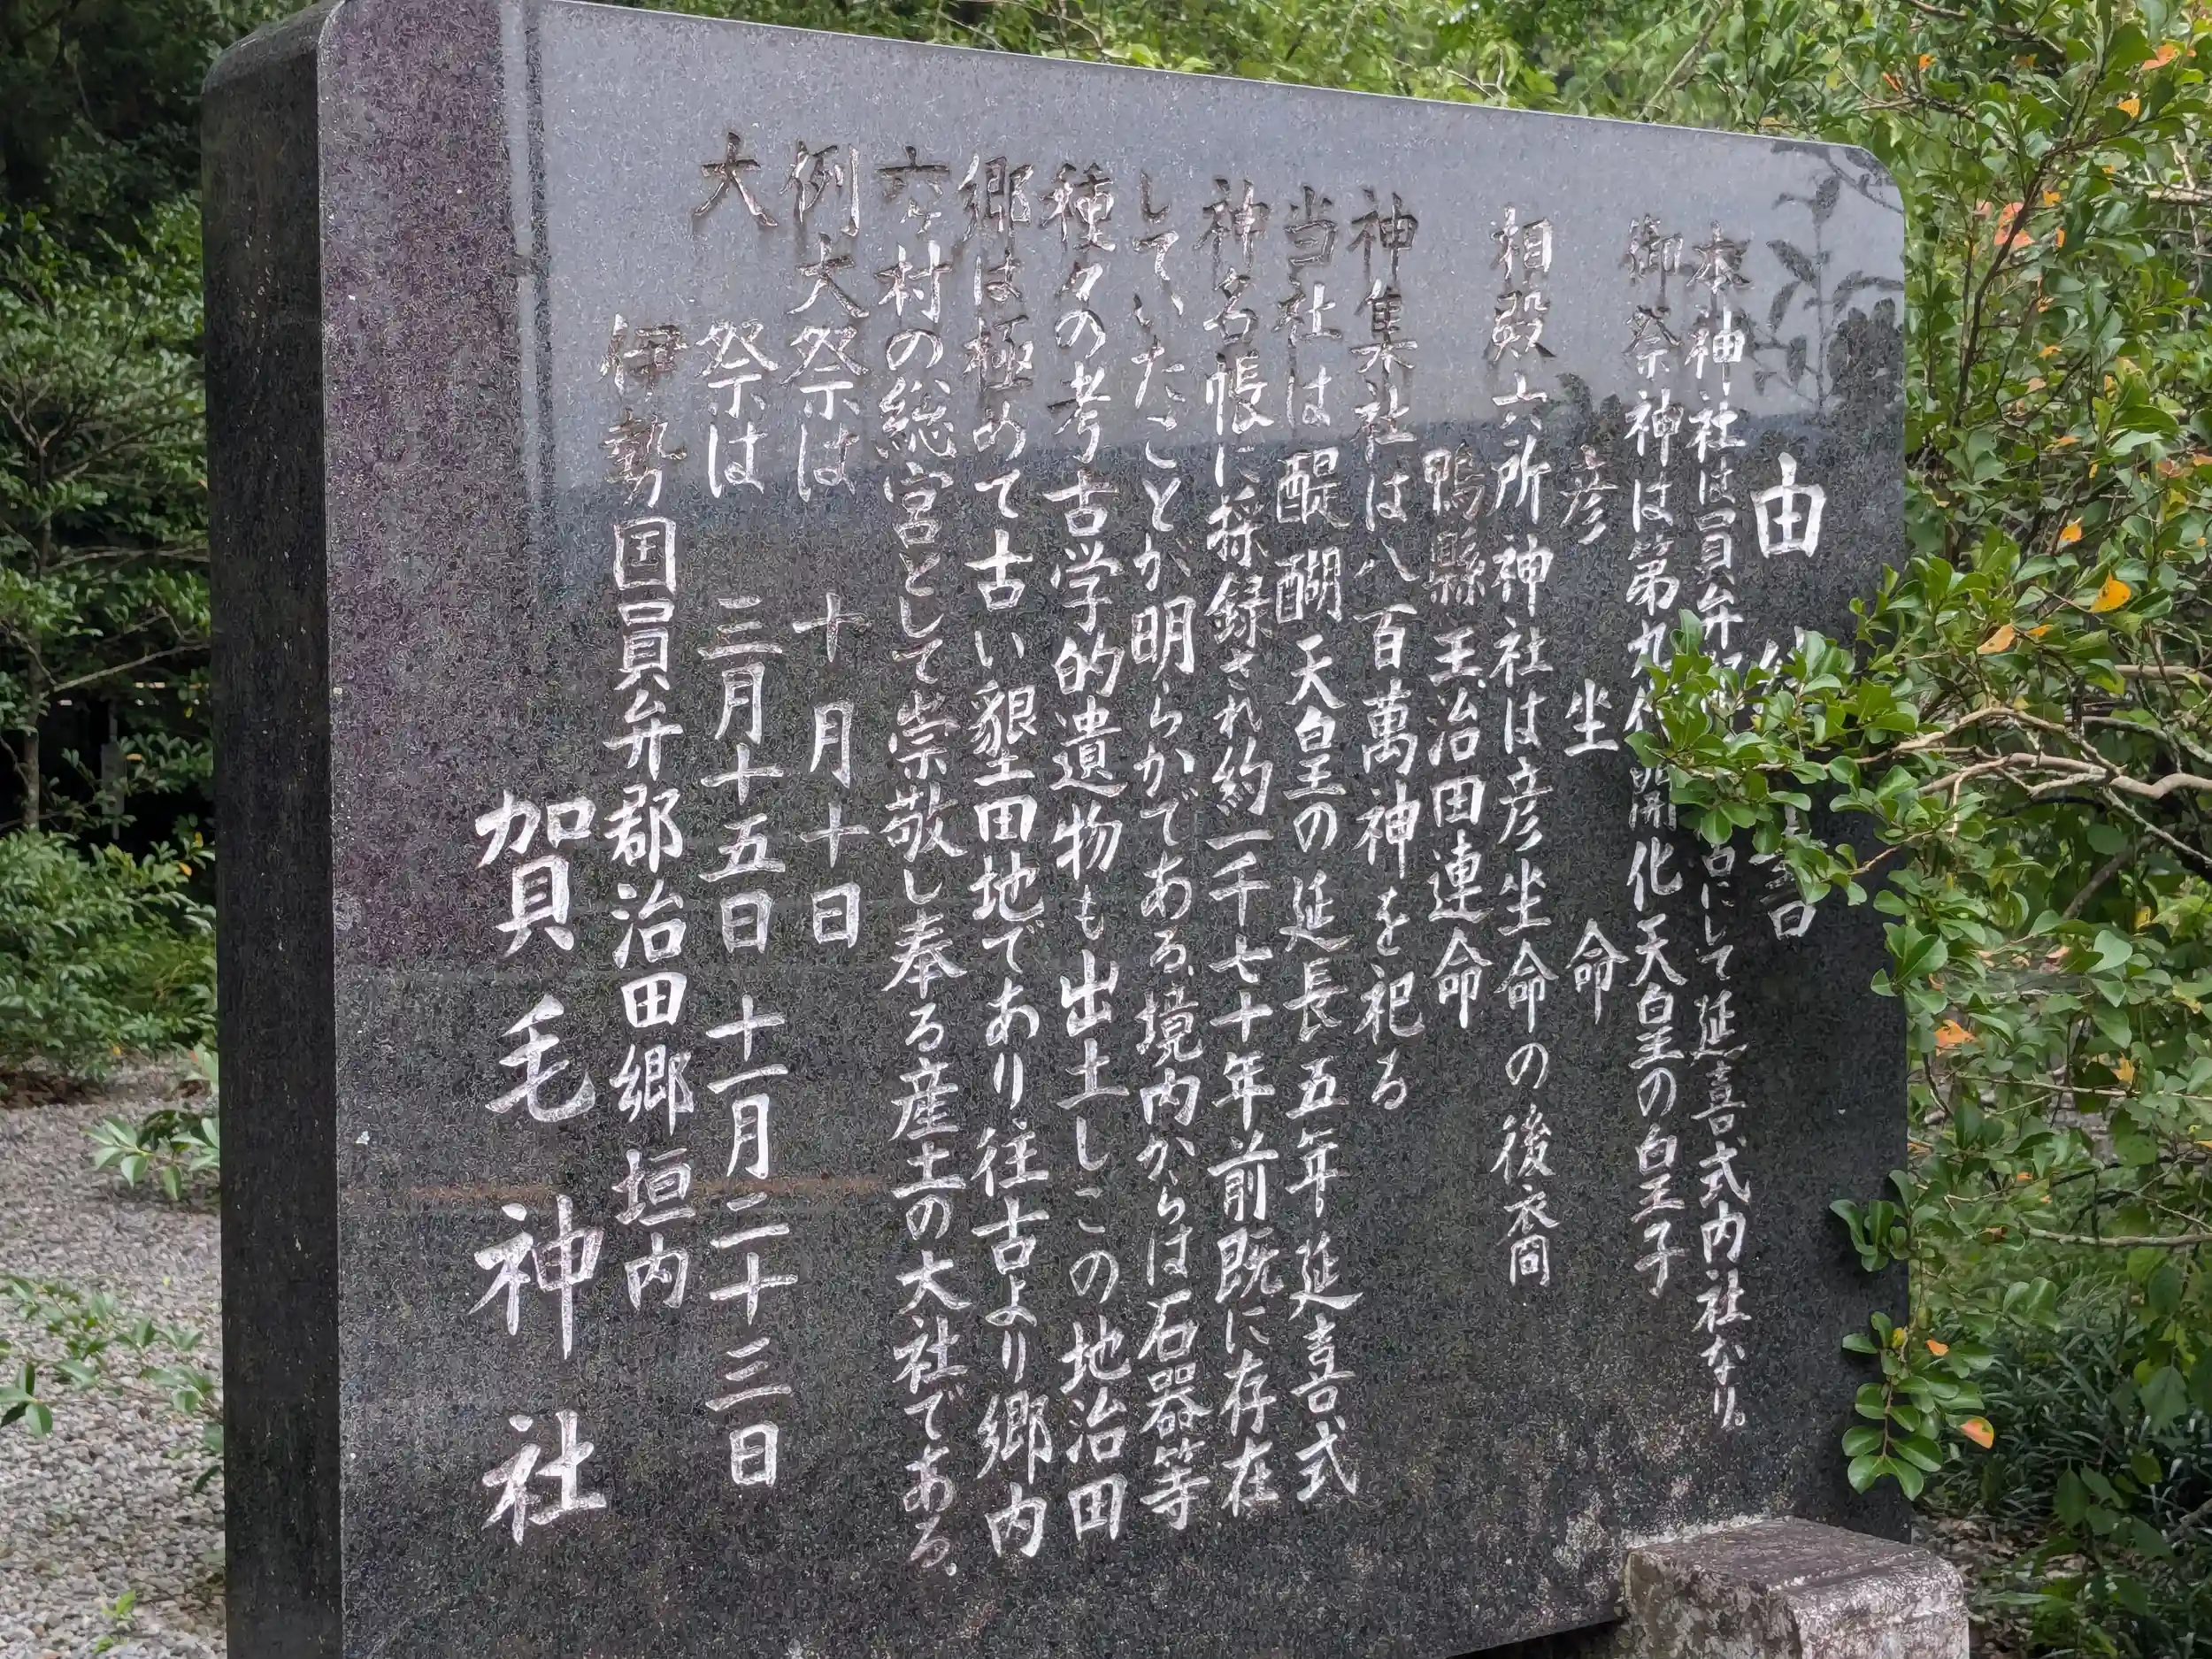 由 書
本神社は員弁 にして延喜式内社なり。
御祭神は第九代開化天皇の皇子
彦坐命
相殿六所神社は彦坐命の後衣間
鴨縣主治田連命
神集社は八百萬神を祀る
当社は醍醐天皇の延長五年延喜式
神名帳に採録され約一千七十年前既に存在
していたことが明らかである、境内からは石器等
種々の考古学的遺物も出土しこの地治田
郷は極めて古い墾田地であり往古より郷内
六ヶ村の総宮として崇敬し奉る産土の大社である。
例大祭は 十月十日
大祭は 三月十五日 十一月二十三日
伊勢国員弁郡治田郷垣内
賀毛神社